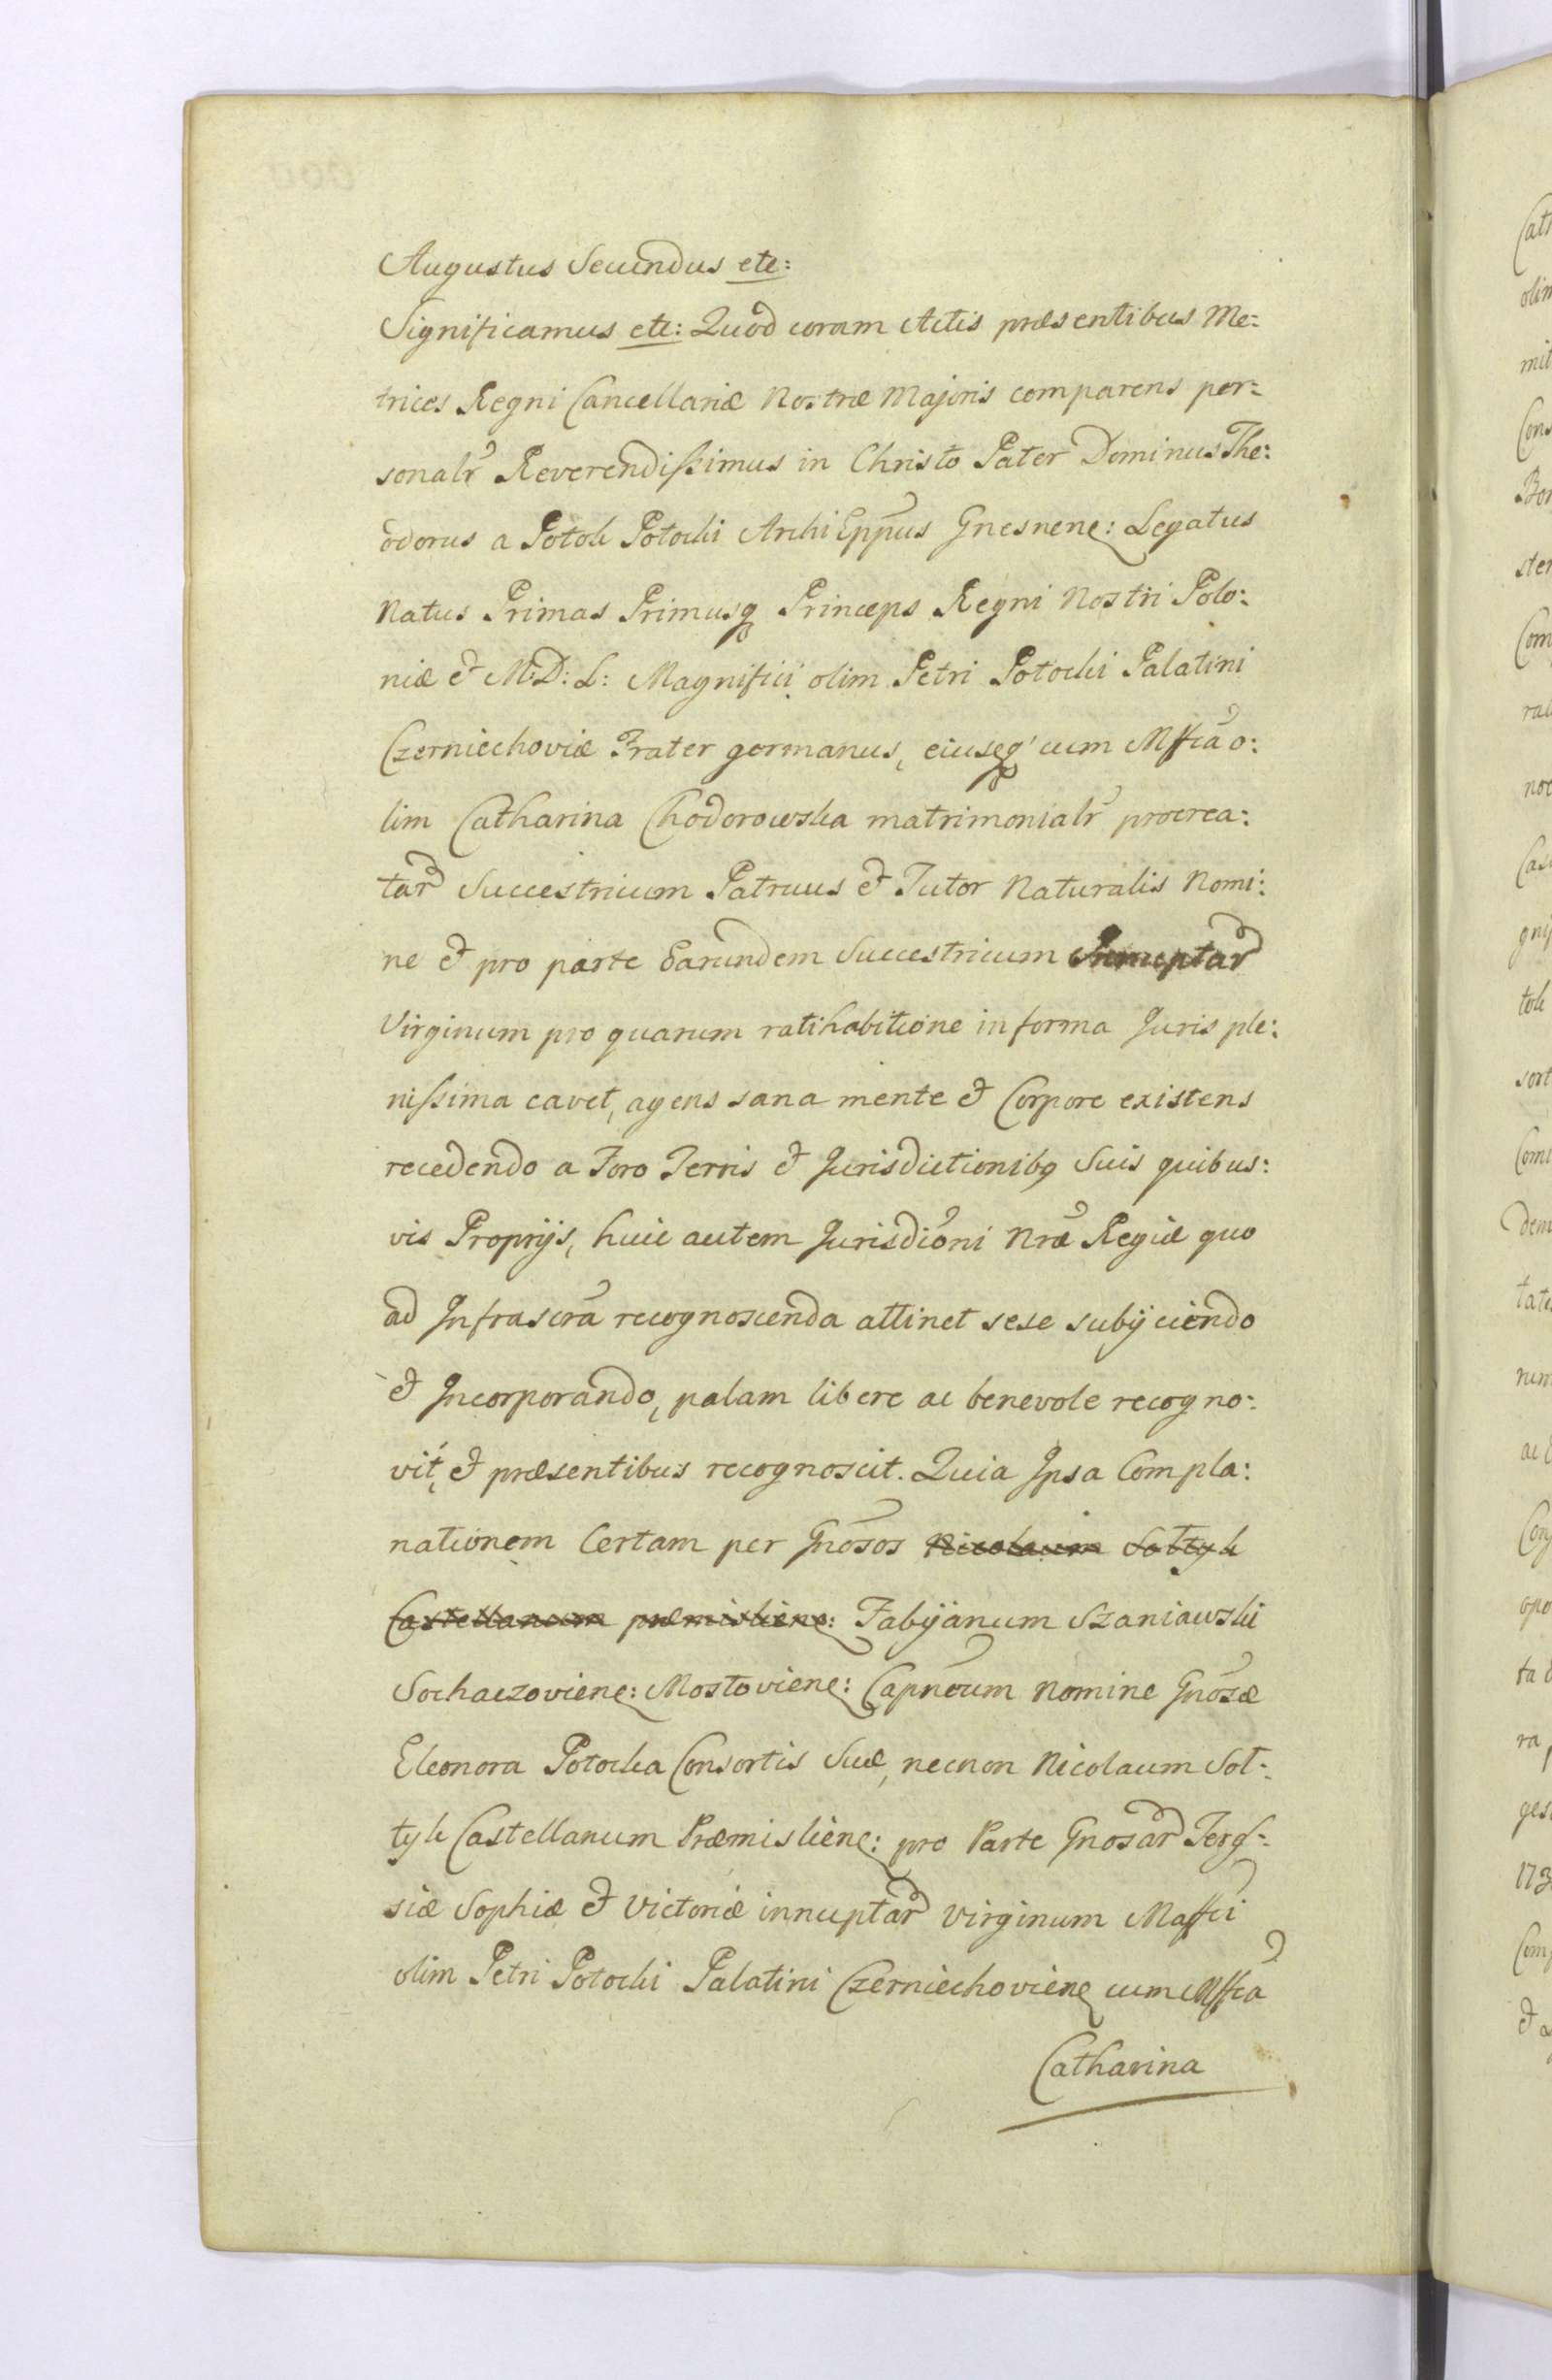 Augustus Secundus etc:
Significamus etc: Quod coram Actis præsentibus Me:
trices Regni Cancellariæ Nostræ Majoris comparens per:
sonalr Reverendißimus in Christo Pater Dominus The:
odorus a Potok Potocki Archi Eppus Gnesnene: Legatus
Natus Primas Primusq Princeps Regni Nostri Polo:
niæ et M: D: L: Magnifici olim Petri Potocki Palatini
Czerniechoviæ Frater germanus, eiusq cum Mffca o:
lim Catharina Chodorowska matrimonialr procrea:
tar Succestricum Patruus et Tutor Naturalis Nomi:
ne et pro parte Earundem Succestricum Innuptar
Virginum pro quarum ratihabitione in forma Juris ple:
nißima cavet, agens sana mente et Corpore existens
recedendo a Foro Terris et Jurisdictionibq Suis quibus:
vis Proprijs, huic autem Jurisdioni Nræ Regiæ quo
ad Infrascra recognoscenda attinet sese subijciendo
et Incorporando, palam libere ac benevole recogno:
vit, et præsentibus recognoscit. Quia Ipsa Compla:
nationem Certam per Gnosos Nicolaum Soltyk
Castellanum præmisliene: Fabijanum Szaniawski
Sochaczoviene: Mostoviene: Capneum Nomine Gnosæ
Eleonora Potocka Consortis Suæ, necnon Nicolaum Sol:
tyk Castellanum Præmisliene: pro Parte Gnosar
siæ Sophiæ et Victoriæ innuptar Virginum Maffci
olim Petri Potocki Palatini Czerniechoviene cum Mffca
Catharina